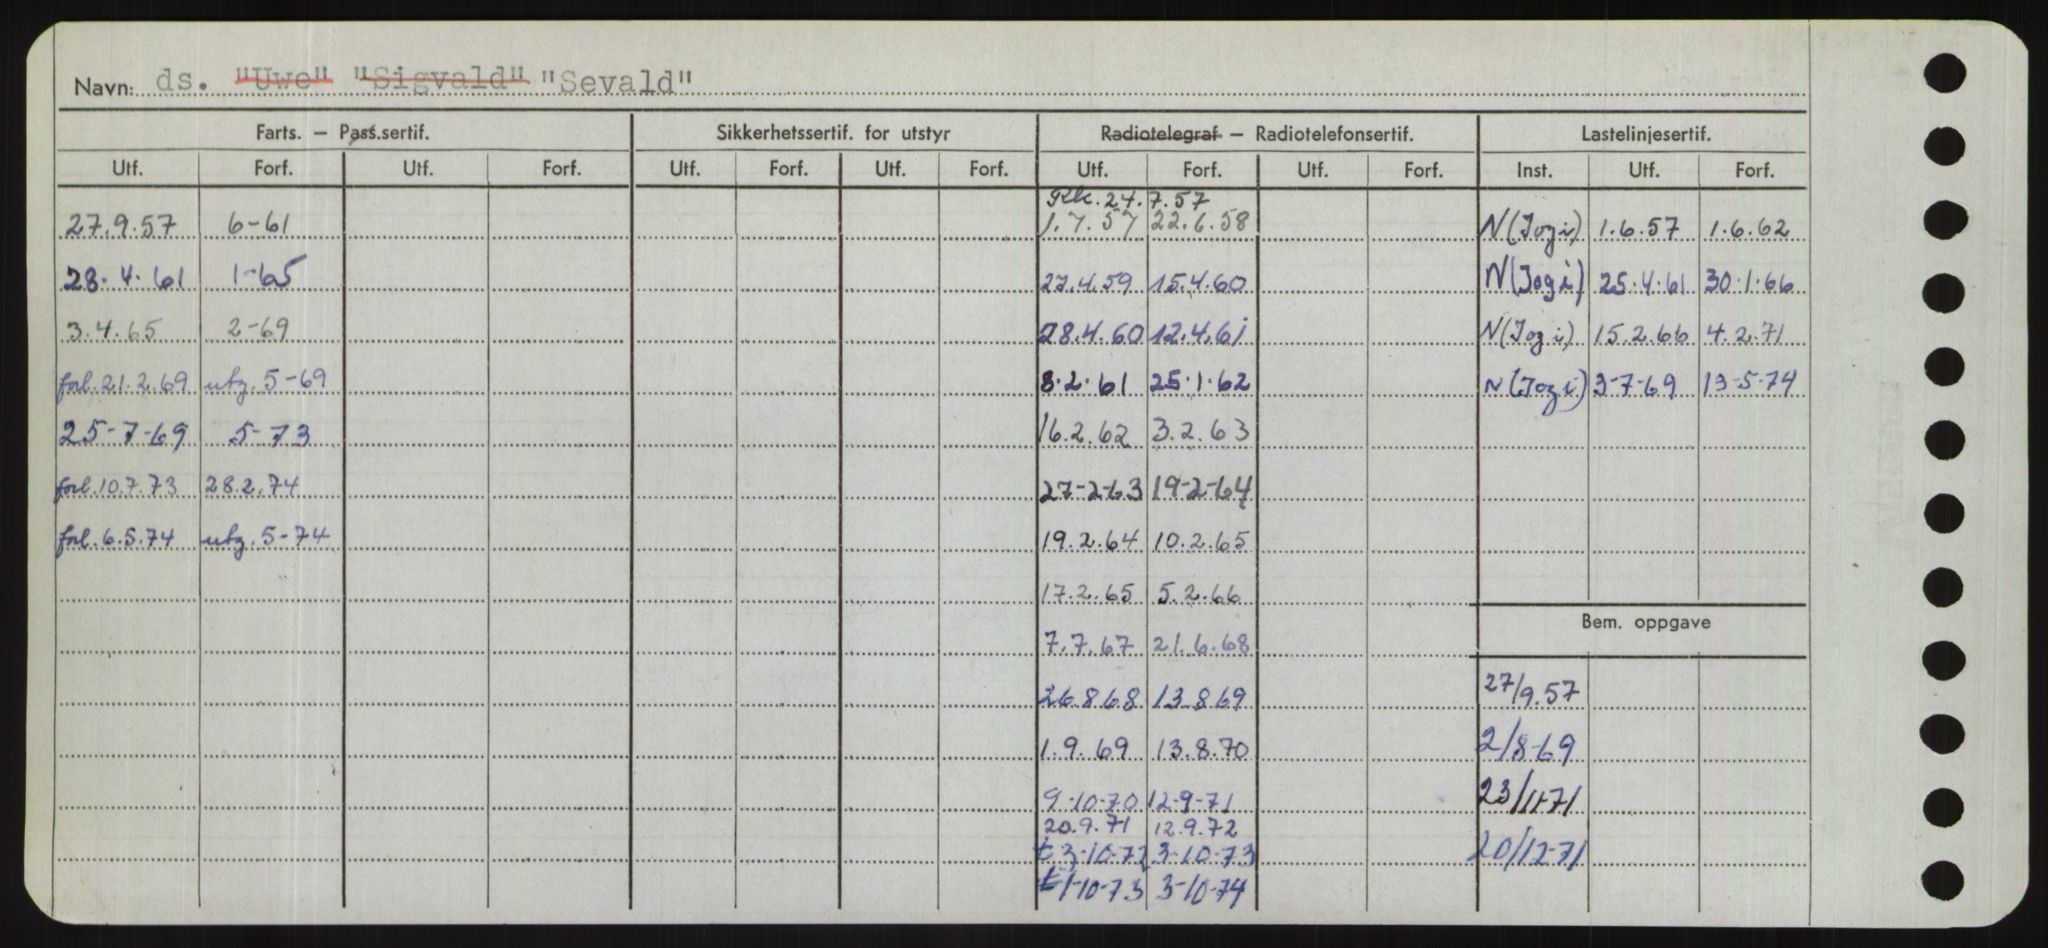 Navn: ds. "Uwe" "Sigvald" "Sevald"
Farts. — Pass.sertif. Sikkerhetssertif. for utstyr Radiotelegraf — Radiotelefonsertif. Lastelinjesertif.
Utf. Forf. Utf. Forf. Utf. Forf. Utf. Forf. Utf. Forf. Utf. Forf. Inst. Utf. Forf.
24.7.57
27.9.57 6-61 1.7.57 22.6.58 N(Jogi) 1.6.57 1.6.62
28.4.61 1-65 27.4.59 15.4.60 N(Jogi) 25.4.61 30.1.66
3.4.65 2-69 28.4.60 12.4.61 N(Jogi) 15.2.66 4.2.71
forl.21.2.69 utg.5-69 8.2.61 25.1.62 N(Jogi) 3-7-69 13-5-74
25-7-69 5-73 16.2.62 3.2.63
forl.10.7.73 28.2.74 27-2-63 19-2-64
forl.6.5.74 utg.5-74 19.2.64 10.2.65
17.2.65 5.2.66
Bem. oppgave
7.7.67 21.6.68
26.8.68 13.8.69 27/9.57
1.9.69 13.8.70 2/8-69
9-10-70 12-9-71 23/11-71
20.9.71 12.9.72
t 3-10-72 3-10-73 20/12-71
t 1-10-73 3-10-74